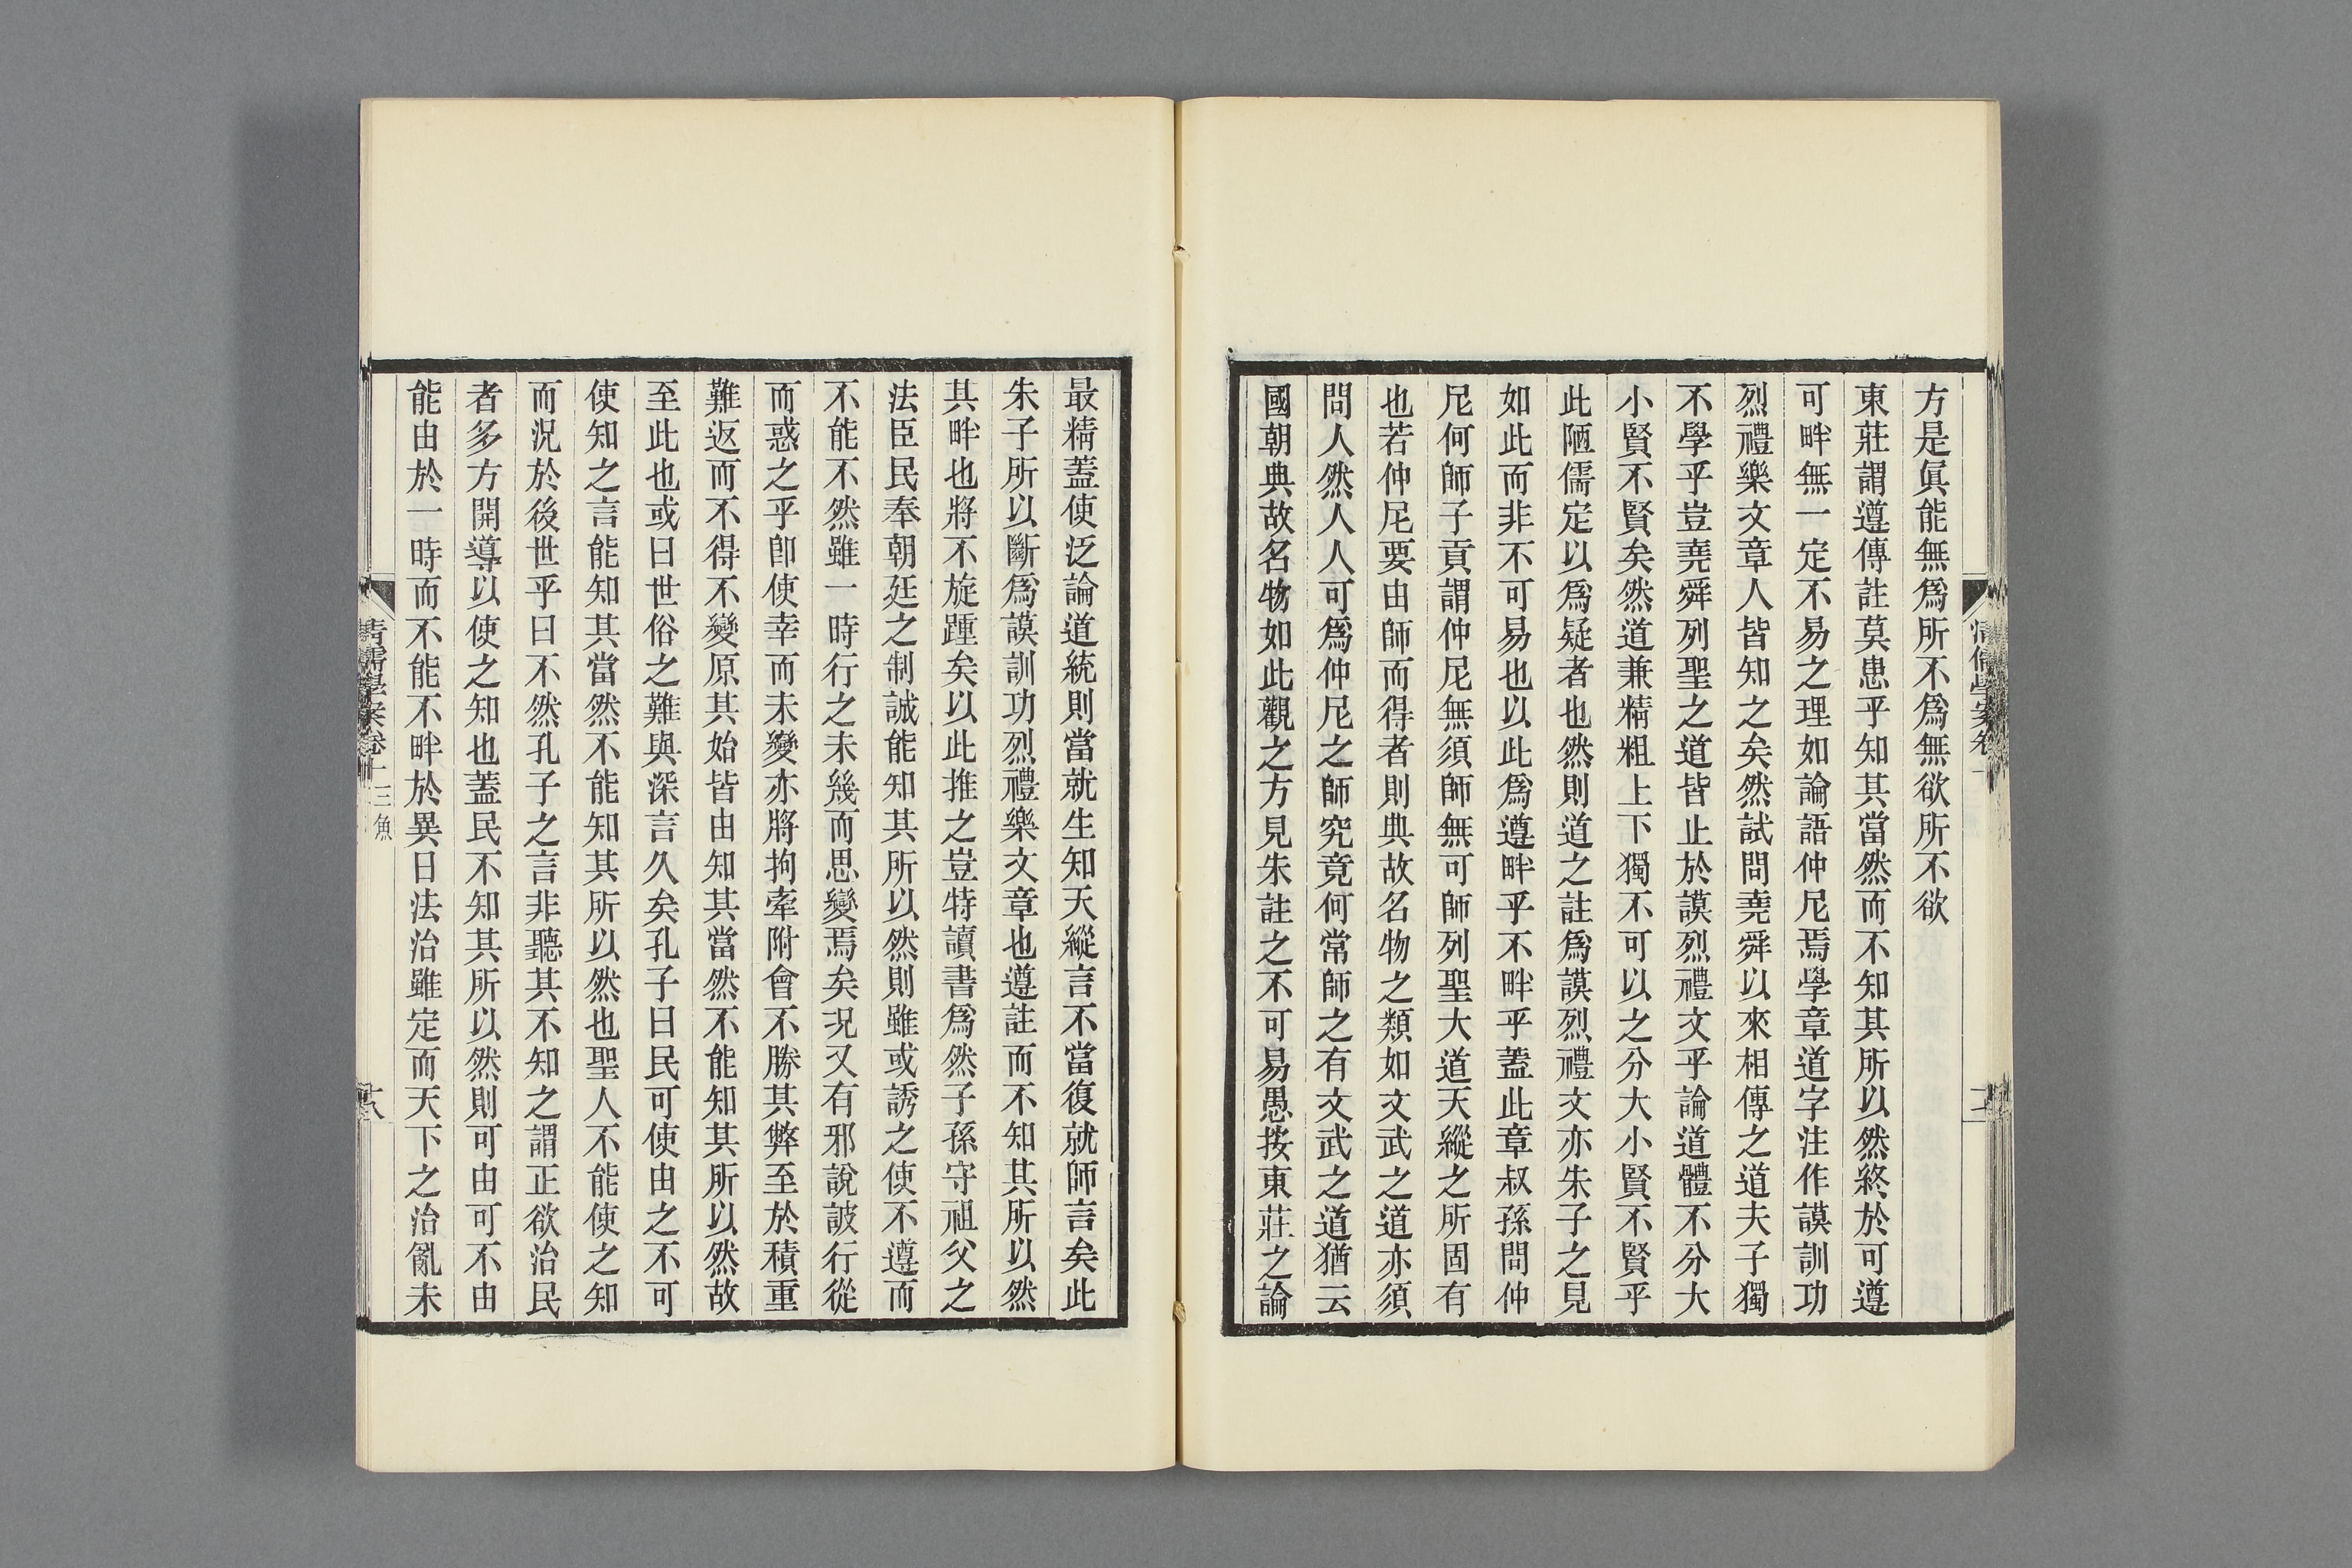 方是眞能無爲所不爲無欲所不欲
東莊謂遵傳註莫患乎知其當然而不知其所以然終於可遵
可畔無一定不易之理如論語仲尼焉學章道字注作謨訓功
烈禮樂文章人皆知之矣然試問堯舜以來相傳之道夫子獨
不學乎豈堯舜列聖之道皆止於謨烈禮文乎論道體不分大
小賢不賢矣然道兼精粗上下獨不可以之分大小賢不賢乎
此陋儒定以爲疑者也然則道之註爲謨烈禮文亦朱子之見
如此而非不可易也以此爲遵畔乎不畔乎蓋此章叔孫問仲
尼何師子貢謂仲尼無須師無可師列聖大道天縱之所固有
也若仲尼要由師而得者則典故名物之類如文武之道亦須
問人然人人可爲仲尼之師究竟何常師之有文武之道猶云
國朝典故名物如此觀之方見朱註之不可易愚按東莊之論
最精蓋使泛論道統則當就生知天縱言不當復就師言矣此
朱子所以斷爲謨訓功烈禮樂文章也遵註而不知其所以然
其畔也將不旋踵矣以此推之豈特讀書爲然子孫守祖父之
法臣民奉朝廷之制誠能知其所以然則雖或誘之使不遵而
不能不然雖一時行之未幾而思變焉矣況又有邪說詖行從
而惑之乎卽使幸而未變亦將拘牽附會不勝其弊至於積重
難返而不得不變原其始皆由知其當然不能知其所以然故
至此也或曰世俗之難與深言久矣孔子曰民可使由之不可
使知之言能知其當然不能知其所以然也聖人不能使之知
而況於後世乎曰不然孔子之言非聽其不知之謂正欲治民
者多方開導以使之知也蓋民不知其所以然則可由可不由
能由於一時而不能不畔於異日法治雖定而天下之治亂未
清儒學案卷十 三魚 十八